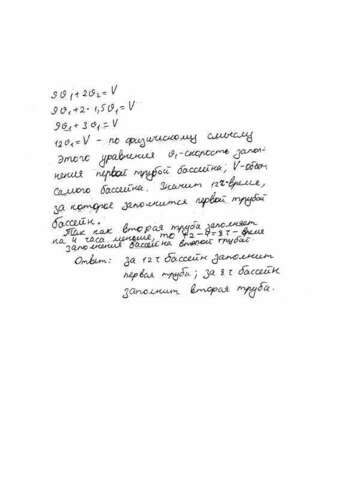 9ϑ₁+2ϑ₂=V
9ϑ₁+2·1,5ϑ₁=V
9ϑ₁+3ϑ₁=V
12ϑ₁=V – по физическому смыслу
этого уравнения ϑ₁-скорость запол-
нения первой трубой бассейна; V-объём
самого бассейна. Значит 12ч-время,
за которое заполнится первой трубой
бассейн.
Так как вторая труба заполняет
на 4 часа меньше, то 12-4=8ч-время
заполнения бассейна второй трубой.
Ответ: за 12ч бассейн заполнит
первая труба; за 8ч бассейн
заполнит вторая труба.